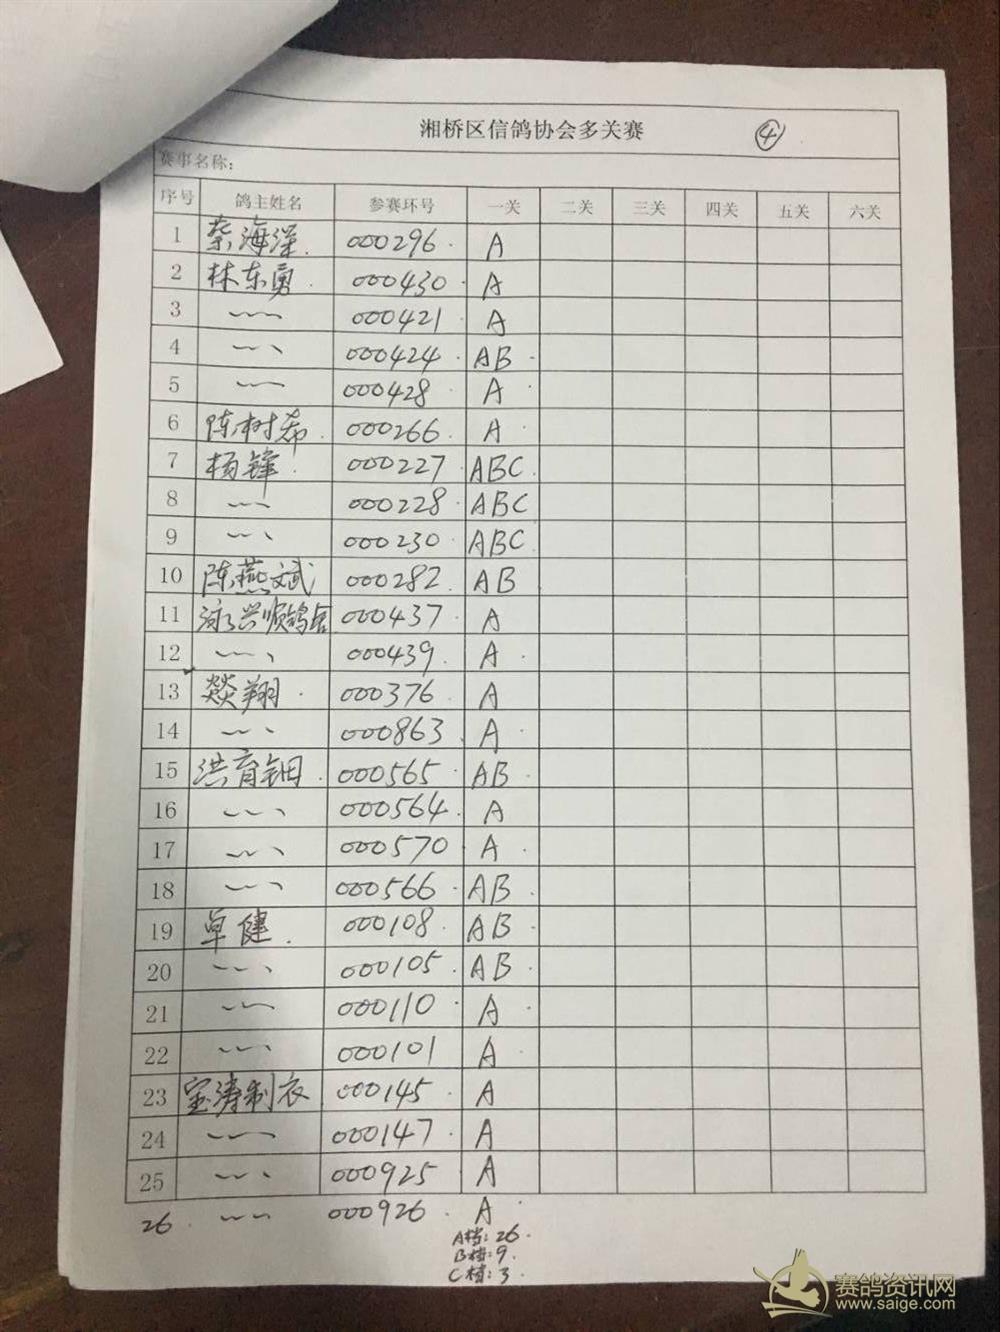 湘桥区信鸽协会多关赛 ④
赛事名称:
序号 鸽主姓名 参赛环号 一关 二关 三关 四关 五关 六关
1 蔡海深 000296 A
2 林东勇 000430 A
3 000421 A
4 000424 AB
5 000428 A
6 陈树希 000266 A
7 杨锋 000227 ABC
8 000228 ABC
9 000230 ABC
10 陈燕斌 000282 AB
11 泳兴顺鸽舍 000437 A
12 000439 A
13 燚翔 000376 A
14 000863 A
15 洪育钿 000565 AB
16 000564 A
17 000570 A
18 000566 AB
19 卓健 000108 AB
20 000105 AB
21 000110 A
22 000101 A
23 宝涛制衣 000145 A
24 000147 A
25 000925 A
26 000926 A
A档: 26
B档: 9
C档: 3
赛鸽资讯网
www.saige.com